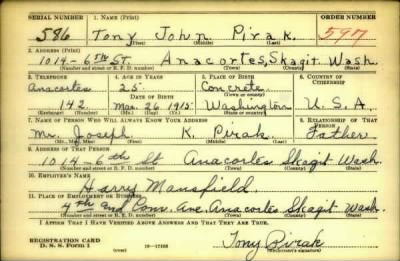 SERIAL NUMBER 1. NAME (Print) ORDER NUMBER
586 Tony John Pirak 597
(First) (Middle) (Last)
2. ADDRESS (Print)
1014-6TH ST. Anacortes, Skagit Wash.
(Number and street or R. F. D. number) (Town) (County) (State)
3. TELEPHONE 4. AGE IN YEARS 5. PLACE OF BIRTH 6. COUNTRY OF CITIZENSHIP
Anacortes 25 Concrete
DATE OF BIRTH (Town or county)
142 Mar. 26 1915 Washington U.S.A.
(Exchange) (Number) (Mo.) (Day) (Yr.) (State or country)
7. NAME OF PERSON WHO WILL ALWAYS KNOW YOUR ADDRESS 8. RELATIONSHIP OF THAT PERSON
Mr. Joseph K. Pirak Father
(Mr., Mrs., Miss) (First) (Middle) (Last)
9. ADDRESS OF THAT PERSON
1014-6th St Anacortes Skagit Wash.
(Number and street or R. F. D. number) (Town) (County) (State)
10. EMPLOYER'S NAME
Harry Mansfield.
11. PLACE OF EMPLOYMENT OR BUSINESS
4th and Com. Ave. Anacortes Skagit Wash.
(Number and street or R. F. D. number) (Town) (County) (State)
I AFFIRM THAT I HAVE VERIFIED ABOVE ANSWERS AND THAT THEY ARE TRUE.
REGISTRATION CARD
D. S. S. Form 1 Tony Pirak